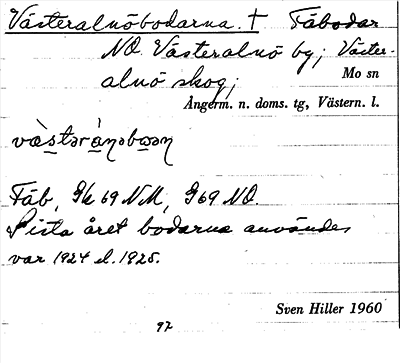 Västeralnöbodarna. † Fäbodar
NO Västeralnö by; Väster-
alnö skog;
Mo sn
Ångerm. n. doms. tg, Västern. l.
Fäb, Gk 69 NM, G69 NO.
Sista året bodarna användes
var 1924 el. 1925.
Sven Hiller 1960
97